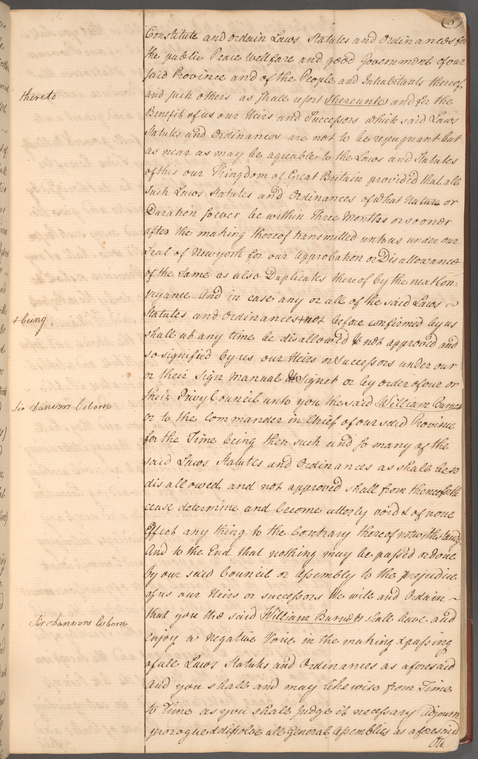 Constitute and ordain Laws Statutes and Ordinances for
the public Peace Welfare and good Government of our
said Province and of the People and Inhabitants thereof
thereto
and such others as shall resort thereunto and for the
Benefit of us our Heirs and Successors which said Laws
Statutes and Ordinances are not to be repugnant but
as near as may be agreable to the Laws and Statutes
of this our Kingdom of Great Britain provided that all
such Laws Statutes and Ordinances of what Nature or
Duration soever be within three Months or sooner
after the making thereof transmitted unto us under our
Seal of New york for our approbation or Disallowance
of the Same as also Duplicates thereof by the next Con-
veyance And in case any or all of the said Laws
+ being
Statutes and ordinances + not before confirmed by us
shall at any time be disallowed & not approved and
so signified by us our Heirs or Successors under our
or their Sign Manual & Signet or by order of our or
Sir Danvers Osborn
their Privy Council unto you the said William Burnet
or to the Commander in Chief of our said Province
for the Time being then such and so many of the
said Laws Statutes and Ordinances as shall be so
disallowed and not approved shall from thenceforth
cease determine and become utterly void & of none
Effect any thing to the Contrary thereof notwithstanding
And to the End that nothing may be passed or done
by our said Council or Assembly to the prejudice
of us our Heirs or successors We will and Ordain
Sir Danvers Osborn
that you the said William Burnet shall have and
enjoy a negative Voice in the making & passing
of all Laws Statutes and Ordinances as aforesaid
And you shall and may likewise from Time
to Time as you shall Judge it necessary Adjourn
prorogue & dissolve all General Assemblies as aforesaid